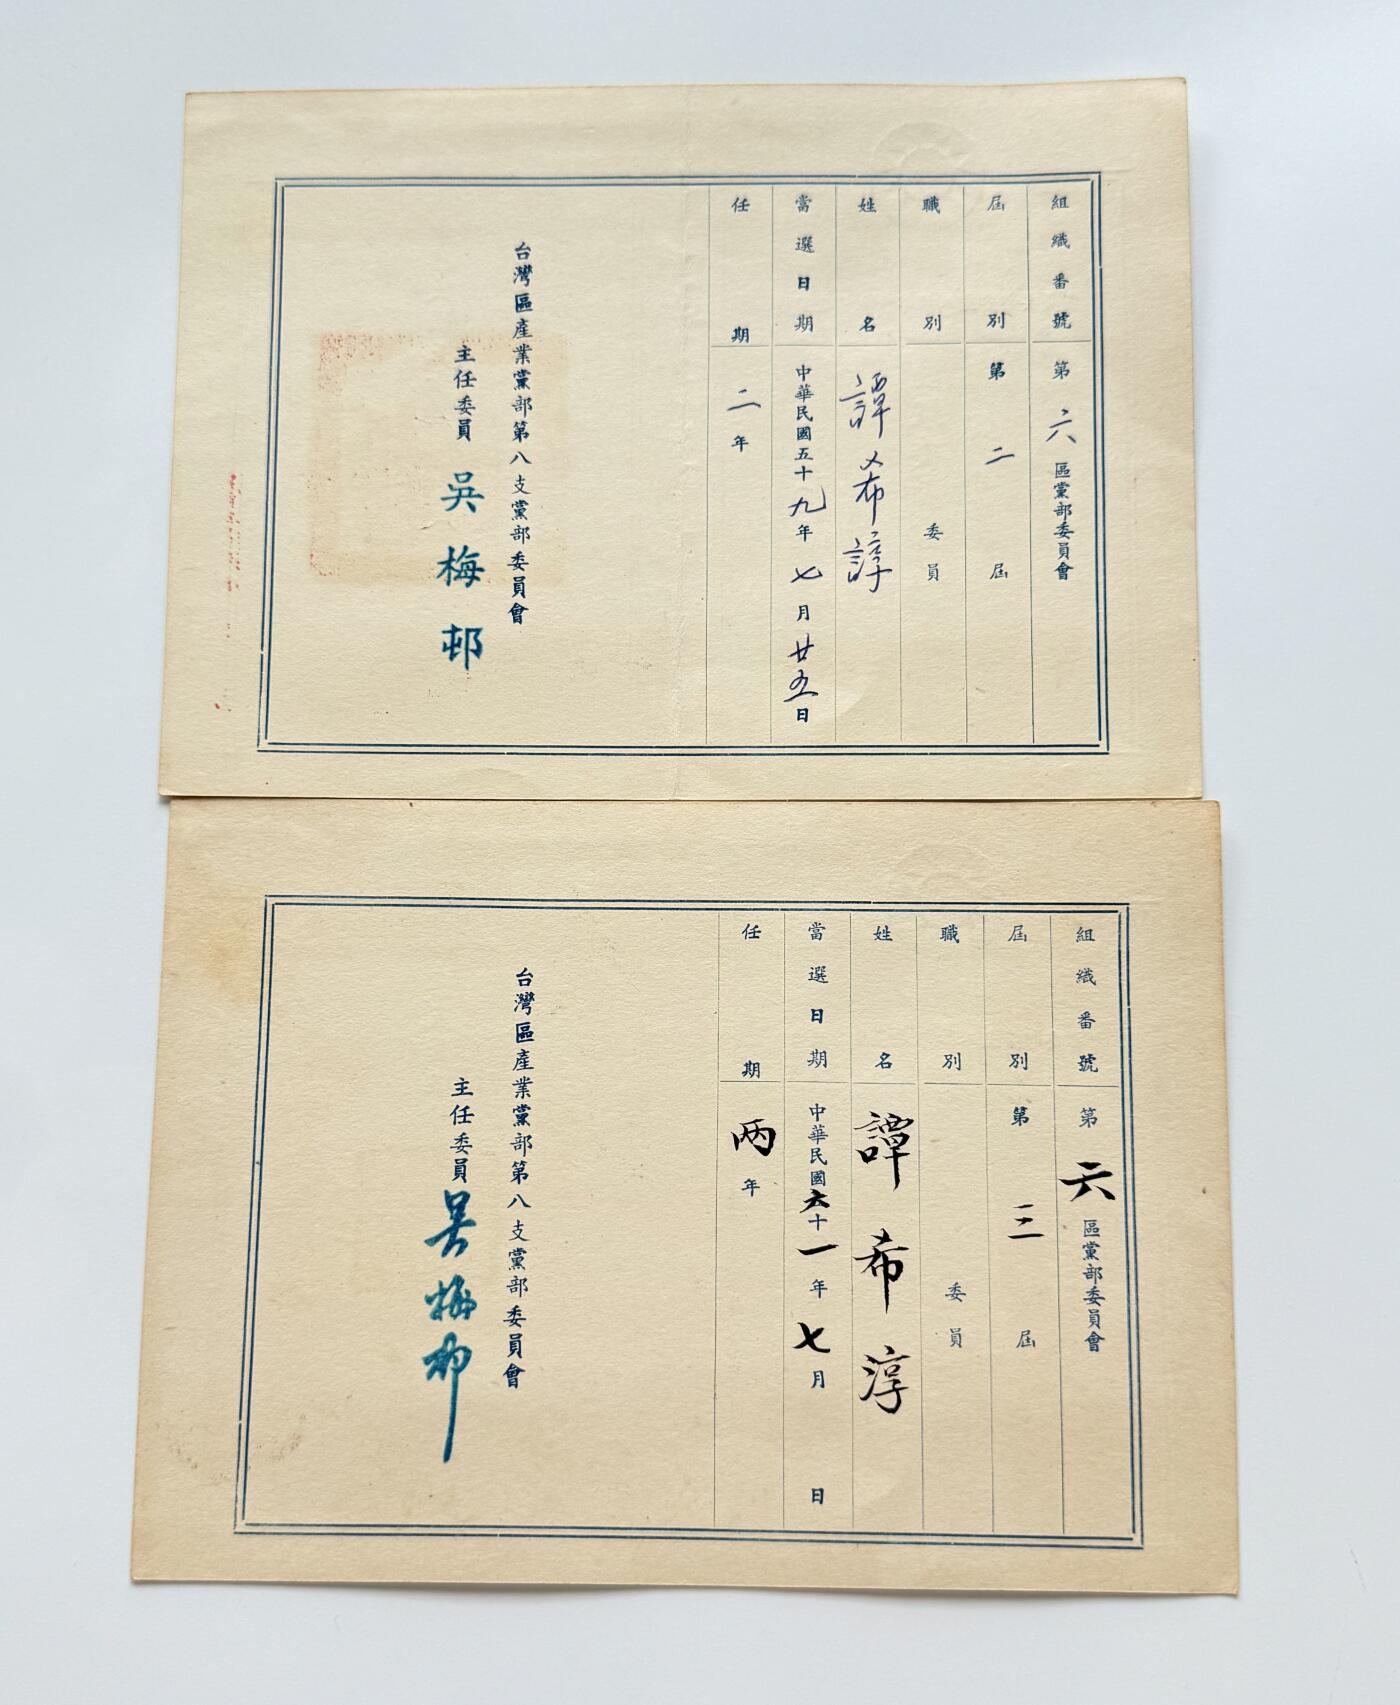 組織番號 第六區黨部委員會
屆別 第二屆
職別 委員
姓名 譚希諄
當選日期 中華民國五十九年七月廿五日
任期 二年
台灣區產業黨部第八支黨部委員會
主任委員 吳梅邨
組織番號 第六區黨部委員會
屆別 第三屆
職別 委員
姓名 譚希淳
當選日期 中華民國六十一年七月 日
任期 兩年
台灣區產業黨部第八支黨部委員會
主任委員 吳梅邨